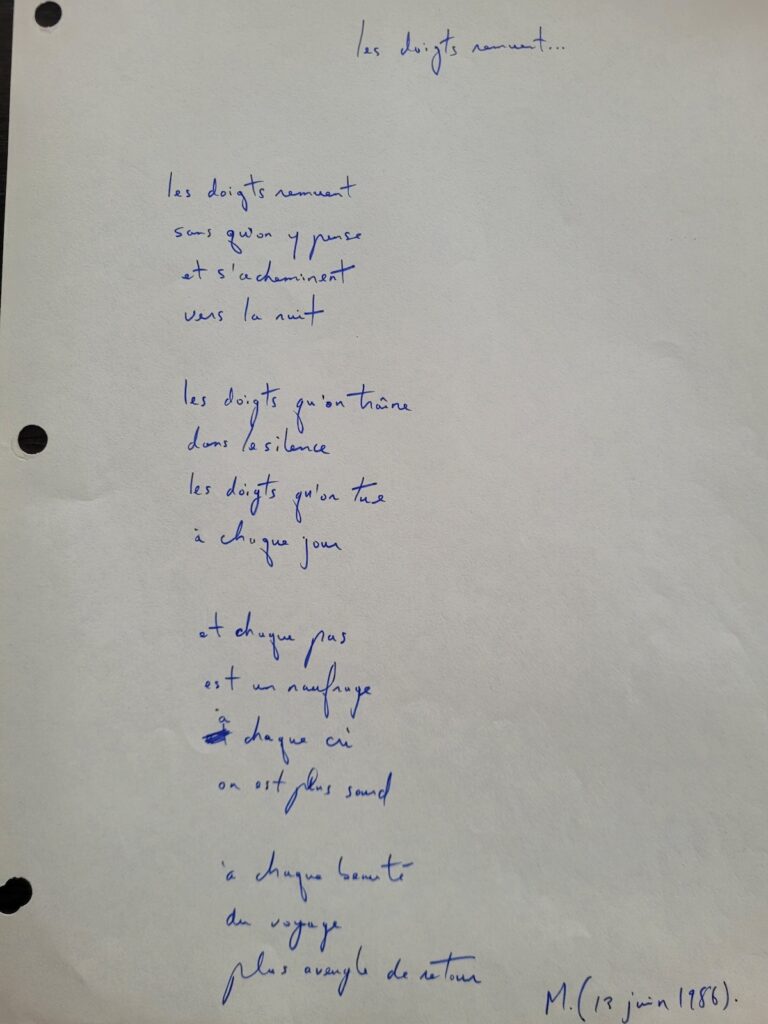 les doigts remuent...
les doigts remuent
sans qu'on y pense
et s'acheminent
vers la nuit
les doigts qu'on traîne
dans le silence
les doigts qu'on tue
à chaque jour
et chaque pas
est un naufrage
à chaque cri
on est plus sourd
à chaque beauté
du voyage
plus aveugle de retour
M. (13 juin 1986).